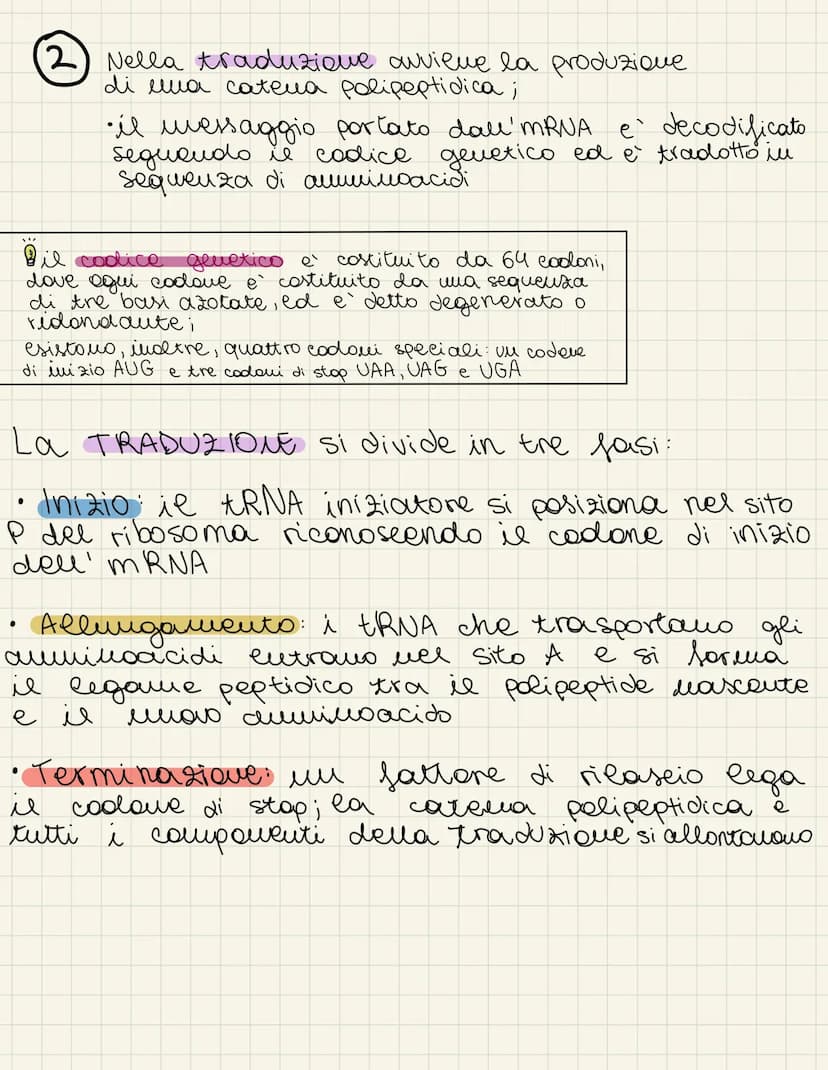 2 Nella traduzione avviene la produzione
di una catena polipeptidica;
•il messaggio portato dall'mRNA e' decodificato
seguendo il codice genetico ed e' tradotto in
sequenza di amminoacidi
il codice genetico e' costituito da 64 codoni,
dove ogni codone e' costituito da una sequenza
di tre basi azotate, ed e' detto degenerato o
ridondante;
esistono, inoltre, quattro codoni speciali: un codone
di inizio AUG e tre codoni di stop UAA, UAG e UGA
La TRADUZIONE si divide in tre fasi:
• Inizio: il tRNA iniziatore si posiziona nel sito
P del ribosoma riconoscendo il codone di inizio
dell' mRNA
• Allungamento: i tRNA che trasportano gli
amminoacidi entrano nel sito A e si forma
il legame peptidico tra il polipeptide nascente
e il nuovo amminoacido
• Terminazione: un fattore di rilascio lega
il codone di stop; la catena polipeptidica e
tutti i componenti della traduzione si allontanano